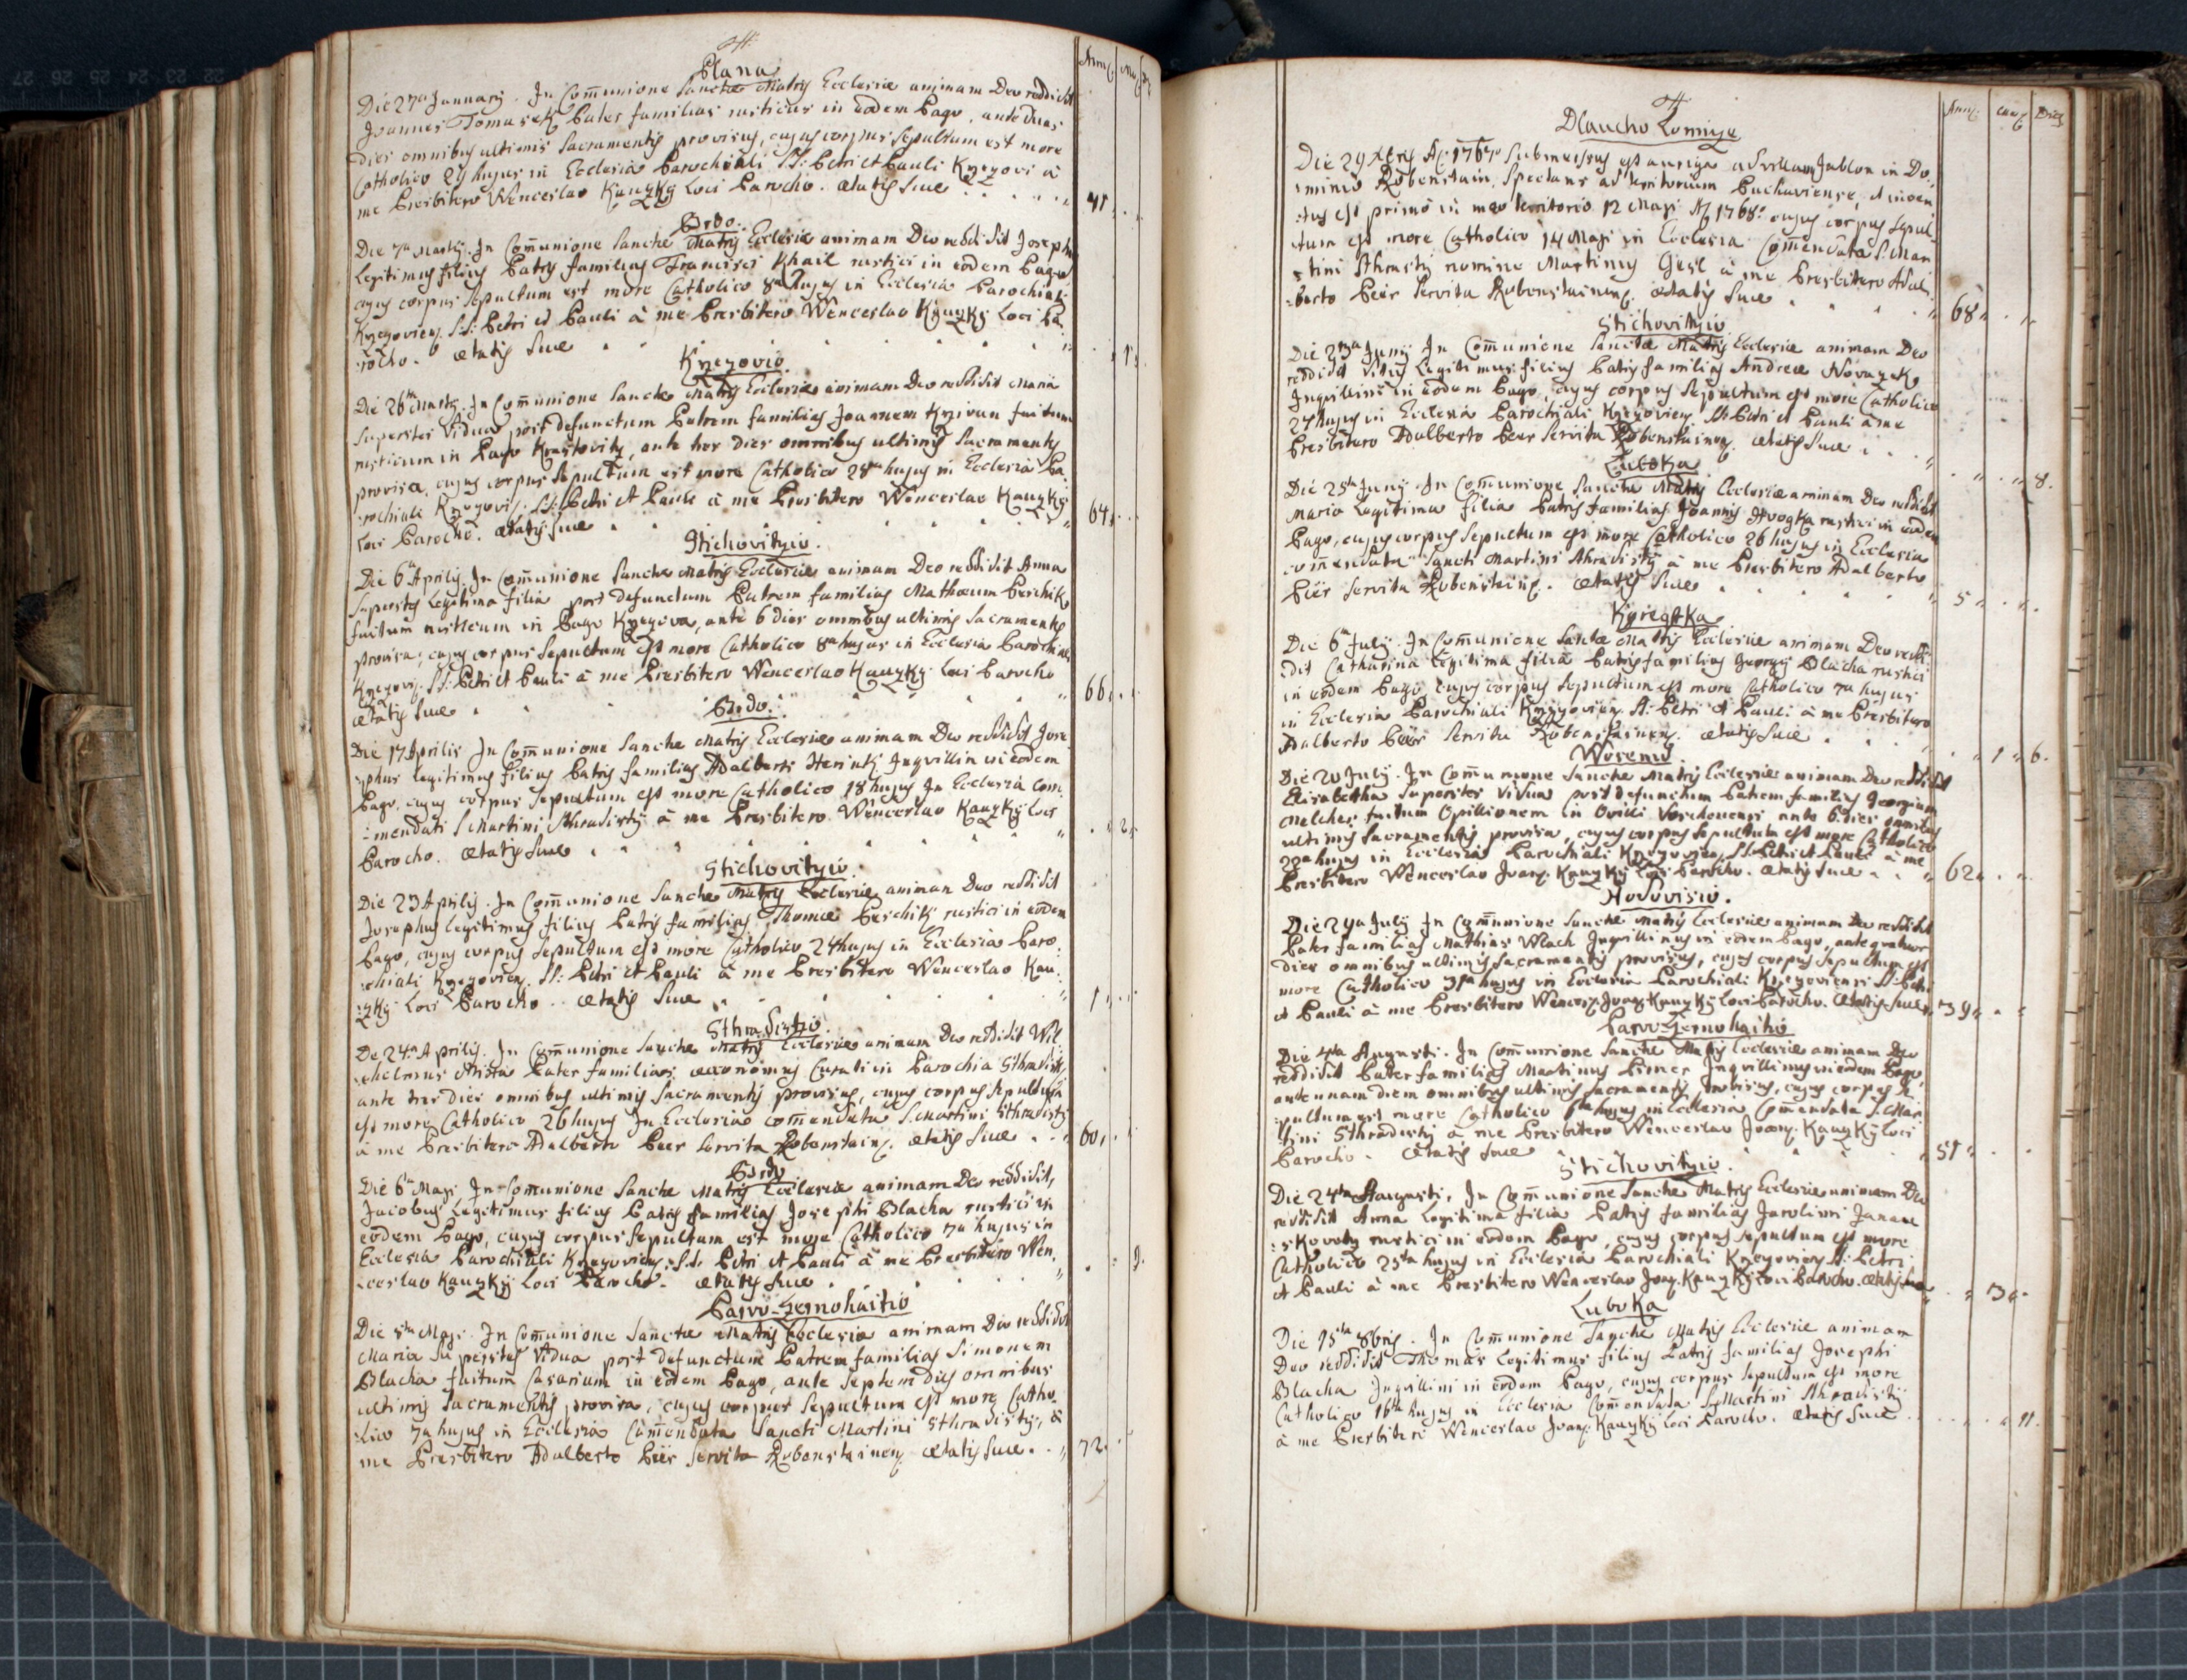 Plana
Die 27a January. In Com̃unione Sanctæ Matris Ecclesiæ animam Deo reddidit
Joannes Tomasek Pater familias rusticus in eodem Pago, ante duas
dies omnibus ultimis Sacramentis provisus, cujus corpus Sepultum est more
Catholico 29 hujus in Ecclesia Parochiali SS: Petri et Pauli à
me Presbitero Wenceslao Kauzky Loci Parocho. Ætatis Suæ 41
Brdo.
Die 7a Martij. In Com̃unione Sanctæ Matris Ecclesiæ animam Deo reddidit Josephus
Legitimus filius Patris familias Francisci Khail rustici in eodem Pago
cujus corpus Sepultum est more Catholico 8a hujus in Ecclesia Parochiali
SS: Petri et Pauli à me Presbitero Wenceslao Kauzky Loci Pa-
:rocho. Ætatis Suæ 1
Knezovio.
Die 26ta Martij. In Com̃unione Sanctæ Matris Ecclesiæ animam Deo reddidit Maria
Superstes Vidua post defunctum Patrem familias Joannem fuitum
rusticum in Pago, ante tres dies omnibus ultimis Sacramentis
provisa, cujus corpus Sepultum est more Catholico 28a hujus in Ecclesia Pa
:rochiali SS: Petri et Pauli à me Presbitero Wenceslao Kauzky
Loci Parocho. Ætatis Suæ 64
Stichovityio.
Die 6ta Aprilis. In Com̃unione Sanctæ Matris Ecclesiæ animam Deo reddidit Anna
Superstes Legitima filia post defunctum Patrem familias Mathæum Beschik
fuitum rusticum in Pago, ante 6 dies omnibus ultimis Sacramentis
provisa, cujus corpus Sepultum est more Catholico 8a hujus in Ecclesia Parochiali
SS: Petri et Pauli à me Presbitero Wenceslao Kauzky Loci Parocho
Ætatis Suæ 66
Brdo.
Die 17 Aprilis In Com̃unione Sanctæ Matris Ecclesiæ animam Deo reddidit Jose-
:phus Legitimus filius Patris familias Adalberti in eodem
Pago, cujus corpus Sepultum est more Catholico 18 hujus In Ecclesia Com-
:mendati S Martini Sthradisty à me Presbitero Wenceslao Kauzky Loci
Parocho. Ætatis Suæ 2
Stichovityio.
Die 23 Aprilis. In Com̃unione Sanctæ Matris Ecclesiæ animam Deo reddidit
Josephus Legitimus filius Patris familias Thomæ Beschik rustici in eodem
Pago, cujus corpus Sepultum est more Catholico 24 hujus in Ecclesia Paro-
:chiali SS: Petri et Pauli à me Presbitero Wenceslao Kau-
:zky Loci Parocho. Ætatis Suæ 1
Sthradistio.
De 24a Aprilis. In Com̃unione Sanctæ Matris Ecclesiæ animam Deo reddidit Wil-
:helmus Pater familias, œconomus Curati in Parochia
ante tres dies omnibus ultimis Sacramentis provisus, cujus corpus Sepultum
est more Catholico 26 hujus In Ecclesia com̃endata S: Martini Sthradisty
à me Presbitero Adalberto Beer Servita Rabenstain. Ætatis Suæ 60
Brdo
Die 6ta Maji. In Com̃unione Sanctæ Matris Ecclesiæ animam Deo reddidit,
Jacobus Legitimus filius Patris familias Josephi Blacha rustici in
eodem Pago, cujus corpus Sepultum est more Catholico 7a hujus in
Ecclesia Parochiali SS: Petri et Pauli à me Presbitero Wen-
:ceslao Kauzky Loci Parocho. Ætatis Suæ 9
Parvo-Zernohaitio
Die Maji. In Com̃unione Sanctæ Matris Ecclesiæ animam Deo reddidit
Maria Superstes Vidua post defunctum Patrem familias Simonem
Blacha fuitum Casarium in eodem Pago, ante Septem dies omnibus
ultimis Sacramentis provisa, cujus corpus Sepultum est more Catho-
:lico 7a hujus in Ecclesia Com̃endata Sancti Martini Sthradisty, à
me Presbitero Adalberto Beer Servita Rabenstainen. Ætatis Suæ. 72
Dlaucho Lomize
Die 29 Xbris A. 1767 Submersus est auriga ad Villam Jablon in Do-
:minio Rabenstain, Spectans ad territorium Buchaviense, et inven
:tus est primo in meo territorio 12 Maji A. 1768. cujus corpus Sepul-
:tum est more Catholico 14 Maji in Ecclesia Com̃endata S: Mar
:tini Sthradisty nomine Martinus Gesl à me Presbitero Adal-
:berto Beer Servita Rabenstainen. Ætatis Suæ 68
Stichovityio
Die 23a Junij In Com̃unione Sanctæ Matris Ecclesiæ animam Deo
reddidit Vitus Legitimus filius Patris familias Andreæ Novazek
Inquillini in eodem Pago, cujus corpus Sepultum est more Catholico
24 hujus in Ecclesia Parochiali SS: Petri et Pauli à me
Presbitero Adalberto Beer Servita Rabenstainen. Ætatis Suæ 8.
Luboka
Die 25ta Junij. In Com̃unione Sanctæ Matris Ecclesiæ animam Deo reddidit
Maria Legitima filia Patris familias Joannis rustici in eodem
Pago, cujus corpus Sepultum est more Catholico 26 hujus in Ecclesia
com̃endata Sancti Martini Sthradisty à me Presbitero Adalberto
Beer Servita Rabenstain. Ætatis Suæ 5
Die 6ta Julij. In Com̃unione Sanctæ Matris Ecclesiæ animam Deo reddi-
:dit Catharina Legitima filia Patris familias Georgij Blacha rustici
in eodem Pago, cujus corpus Sepultum est more Catholico 7a hujus
in Ecclesia Parochiali SS: Petri et Pauli à me Presbitero
Adalberto Beer Servita Rabenstainen. Ætatis Suæ 1 6.
Die 20 Julij. In Com̃unione Sanctæ Matris Ecclesiæ animam Deo reddidit
Elisabetha Superstes Vidua post defunctum Patrem familias Georgium
Melcher fuitum Opillionem in Ovilli, ante 6 dies omnibus
ultimis Sacramentis provisa, cujus corpus Sepultum est more Catholico
22a hujus in Ecclesia Parochiali SS: Petri et Pauli à me
Presbitero Wenceslao Joan. Kauzky Loci Parocho. Ætatis Suæ 62
Hodovisio.
Die 29a Julij In Com̃unione Sanctæ Matris Ecclesiæ animam Deo reddidit
Pater familias Mathias Wlach Inquillinus in eodem Pago, ante quatuor
dies omnibus ultimis Sacramentis provisus, cujus corpus Sepultum est
more Catholico 31a hujus in Ecclesia Parochiali SS: Petri
et Pauli à me Presbitero Wences. Joan. Kauzky Loci Parocho. Ætatis Suæ 39
Parvo-Zernohaitio
Die 4ta Augusti. In Com̃unione Sanctæ Matris Ecclesiæ animam Deo
reddidit Pater familias Martinus Inquillinus in eodem Pago,
ante unam diem omnibus ultimis Sacramentis provisus, cujus corpus Se
:pultum est more Catholico 6ta hujus in Ecclesia Com̃endata S. Mar-
:tini Sthradisty à me Presbitero Wenceslao Joan. Kauzky Loci
Parocho. Ætatis Suæ 51
Stichovityio.
Die 24ta Augusti. In Com̃unione Sanctæ Matris Ecclesiæ animam Deo
reddidit Anna Legitima filia Patris familias Jarolimi
rustici in eodem Pago, cujus corpus Sepultum est more
Catholico 25ta hujus in Ecclesia Parochiali SS: Petri
et Pauli à me Presbitero Wenceslao Joan. Kauzky Loci Parocho. Ætatis Suæ 3
Luboka
Die 15ta 8bris. In Com̃unione Sanctæ Matris Ecclesiæ animam
Deo reddidit Thomas Legitimus filius Patris familias Josephi
Blacha Inquillini in eodem Pago, cujus corpus Sepultum est more
Catholico 16ta hujus in Ecclesia Com̃endata S Martini Sthradisty
à me Presbitero Wenceslao Joan. Kauzky Loci Parocho. Ætatis Suæ 11.